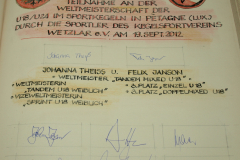 TEILNAHME AN DER
WELTMEISTERSCHAFT DER
U18/U24 IM SPORTKEGELN IN PETANGE (LUX.)
DURCH DIE SPORTLER DES KEGELSPORTVEREINS
WETZLAR E.V. AM 19. SEPT. 2012.
JOHANNA THEISS U. FELIX JANSON
WELTMEISTER "TANDEM MIXED U18"
-WELTMEISTERIN
"TANDEM U18 WEIBLICH"
-VIZEWELTMEISTERIN
"SPRINT U18 WEIBLICH"
-3. PLATZ, EINZEL U18
-3. PLATZ, DOPPEL MIXED U18